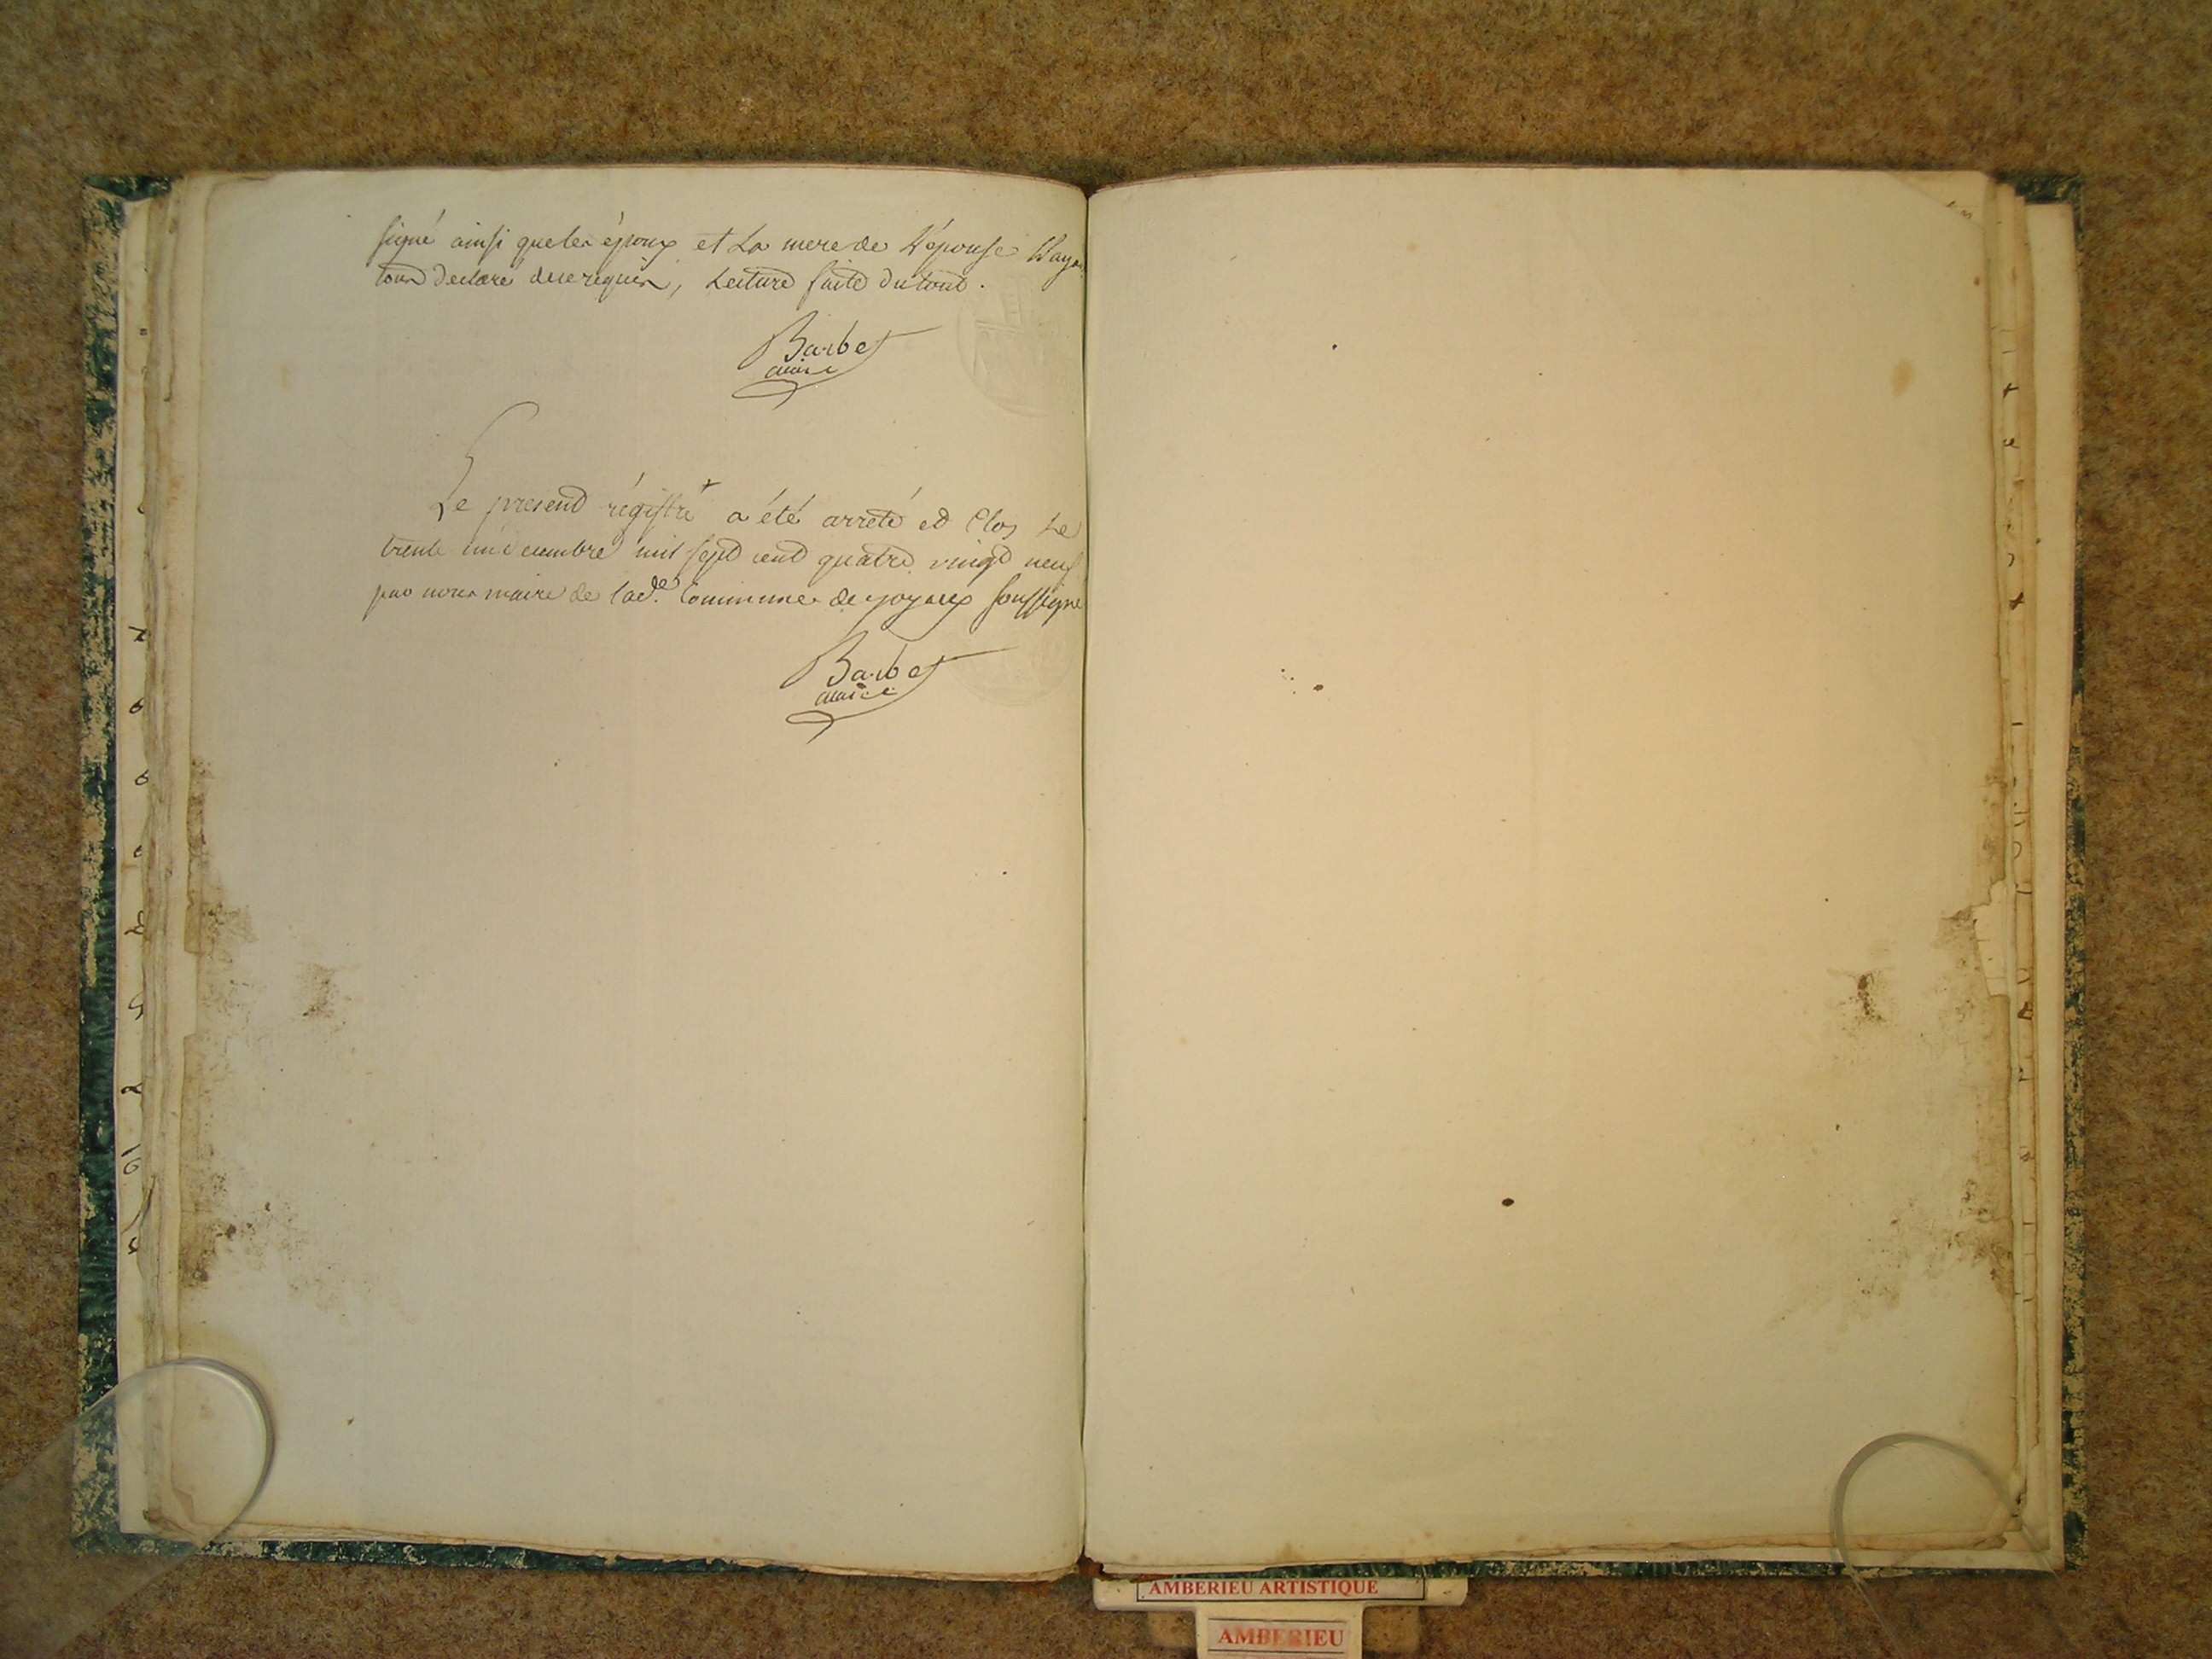 signé ainsi que les époux et la mere de l'épouse
tous declaré de ce requis, Lecture faite du tout.
Barbet
maire
Le present régistre a été arreté et Clos le
trente un decembre mil sept cent quatre vingt neuf
par nous maire de lad.te Commune de joyeux soussigné
Barbet
maire
AMBERIEU ARTISTIQUE
AMBERIEU